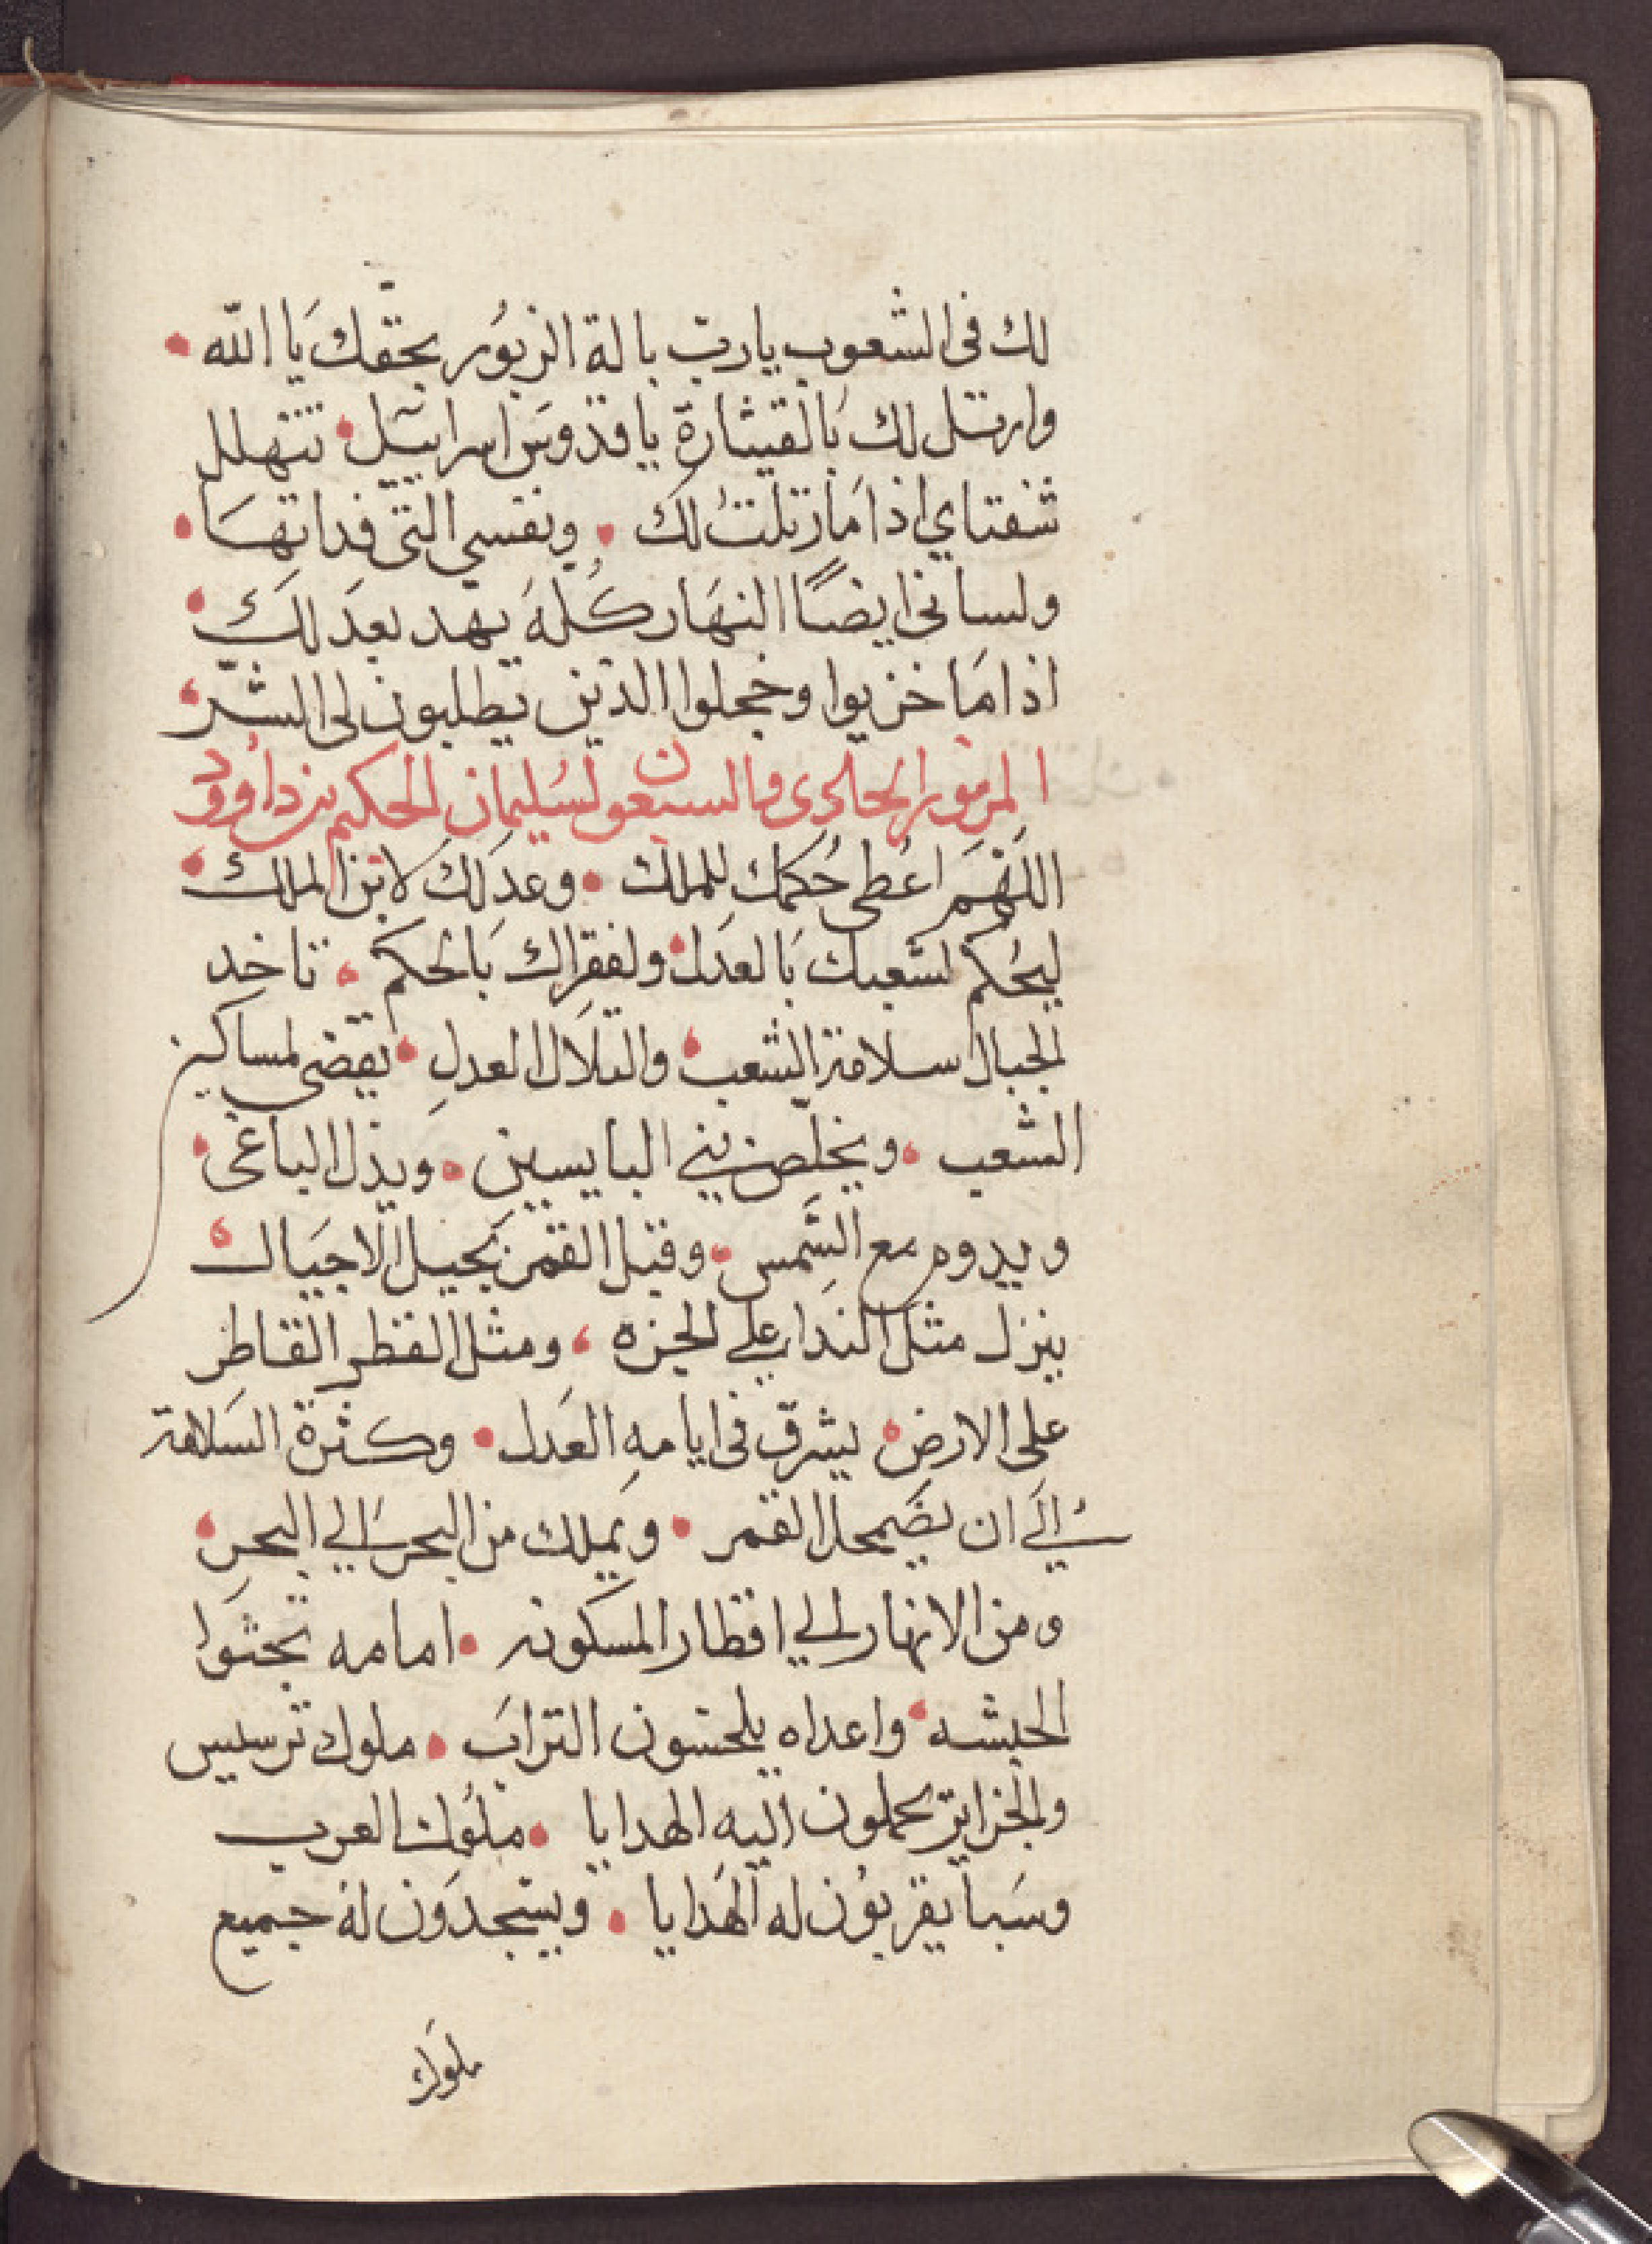 لك فى الشعوب يارب بالة الزبور بحقك يا الله
وارتل لك بالقيثارة يا قدوس اسراييل تتهلل
شفتاي اذا ما رتلت لك ونفسي التى فداتها
ولسانى ايضًا النهار كله يهد بعدلك
اذا ما خزيوا وخجلوا الذين يطلبون لى الشر
المزمور الحادى والسبعون لسليمان الحكيم بن داوود
اللهم اعطى حكمك للملك وعدلك لابن الملك
ليحكم لشعبك بالعدل ولفقراك بالحكم تاخد
الجبال سلامة الشعب والتلال العدل يقضى لمساكين
الشعب ويخلص بني البايسين ويذل الباغى
ويدوم مع الشمس وقبل القمر بجيل الاجيال
ينزل مثل الندا على الجزه ومثل القطر القاطر
على الارض يشرق فى ايامه العدل وكثرة السلامة
الي ان يضمحل القمر ويملك من البحر الي البحر
ومن الانهار الي اقطار المسكونه امامه تجثوا
الحبشه واعداه يلحسون التراب ملوك ترسيس
والجزاير يحملون اليه الهدايا ملوك العرب
وسبا يقربون له الهدايا ويسجدون له جميع
ملوك